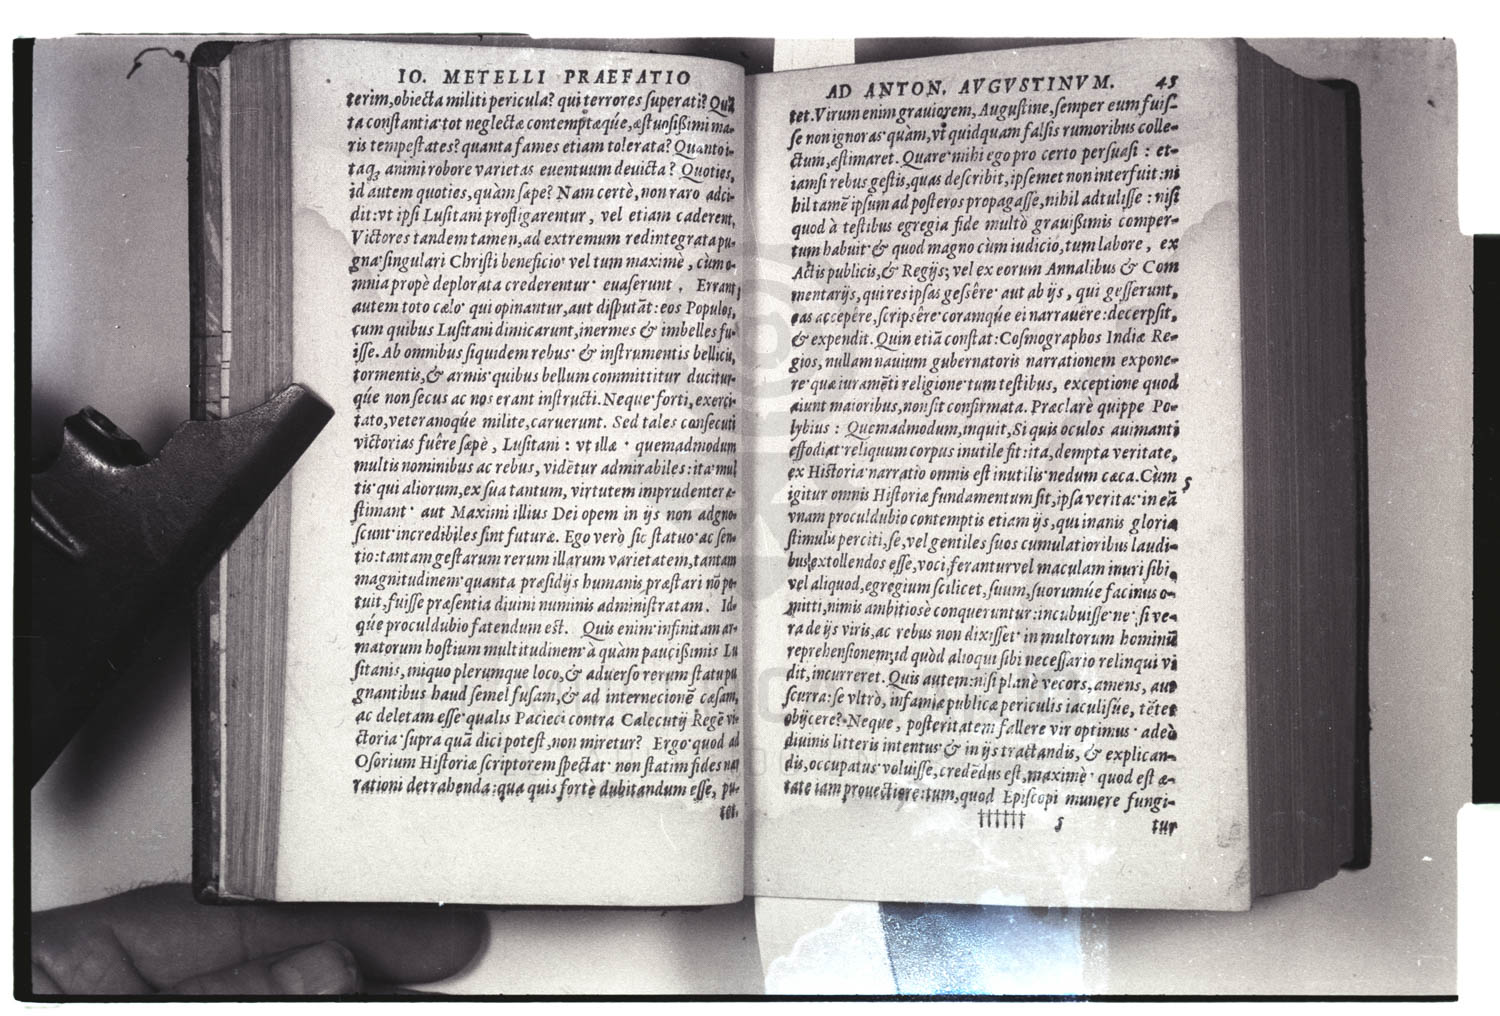 IO. METELLI PRAEFATIO
terim,obiecta militi pericula? qui terrores superati? Quã
ta constantia tot neglectæ contemptæqúe,æstuosissimi ma-
ris tempestates? quanta fames etiam tolerata? Quanto i-
taq; animi robore varietas euentuum deuicta? Quoties,
id autem quoties,quàm sæpe? Nam certè,non raro adci-
dit:vt ipsi Lusitani profligarentur, vel etiam caderent,
Victores tandem tamen,ad extremum redintegrata pu-
gna singulari Christi beneficio vel tum maximè, cùm o-
mnia propè deplorata crederentur euaserunt. Errant
autem toto cælo qui opinantur,aut disputãt:eos Populos,
cum quibus Lusitani dimicarunt,inermes & imbelles fu-
isse. Ab omnibus siquidem rebus & instrumentis bellicis,
tormentis,& armis quibus bellum committitur ducitur-
qúe non secus ac nos erant instructi. Neque forti, exerci-
tato,veteranoqúe milite,caruerunt. Sed tales consecuti
victorias fuêre sæpè, Lusitani: vt illæ quemadmodum
multis nominibus ac rebus, vidẽtur admirabiles:ita mul
tis qui aliorum,ex sua tantum, virtutem imprudenter æ-
stimant aut Maximi illius Dei opem in ijs non adgno-
scunt incredibiles sint futuræ. Ego verò sic statuo ac sen-
tio:tantam gestarum rerum illarum varietatem,tantam
magnitudinem quanta præsidijs humanis præstari nõ po-
tuit,fuisse præsentia diuini numinis administratam. Id-
qúe proculdubio fatendum est. Quis enim infinitam ar-
matorum hostium multitudinem à quàm paucissimis Lu
sitanis,iniquo plerumque loco,& aduerso rerum statu pu
gnantibus haud semel fusam,& ad internecionẽ cæsam,
ac deletam esse qualis Pacieci contra Calecutij Regẽ vi-
ctoria supra quã dici potest,non miretur? Ergo quod ad
Osorium Historiæ scriptorem spectat non statim fides nar
rationi detrahenda:qua quis fortè dubitandum esse, pu-
tet.
AD ANTON. AVGVSTINVM. 45
tet. Virum enim grauiorem, Augustine,semper eum fuis-
se non ignoras quàm,vt quidquam falsis rumoribus colle-
ctum,æstimaret. Quare mihi ego pro certo persuasi: et-
iamsi rebus gestis,quas describit,ipsemet non interfuit:ni
hil tamẽ ipsum ad posteros propagasse,nihil adtulisse: nisi
quod à testibus egregia fide multò grauissimis comper-
tum habuit & quod magno cùm iudicio,tum labore, ex
Actis publicis,& Regijs; vel ex eorum Annalibus & Com
mentarijs,qui res ipsas gessêre aut ab ijs, qui gesserunt,
eas accepêre,scripsêre coramqúe ei narrauêre:decerpsit,
& expendit. Quin etiã constat:Cosmographos Indiæ Re-
gios,nullam nauium gubernatoris narrationem expone-
re quæ iuramẽti religione tum testibus, exceptione quod
aiunt maioribus,non sit confirmata. Præclarè quippe Po-
lybius: Quemadmodum,inquit,Si quis oculos auimanti
effodiat reliquum corpus inutile fit:ita,dempta veritate,
ex Historia narratio omnis est inutilis nedum cæca.Cùm
igitur omnis Historiæ fundamentum sit,ipsa veritas in eã
vnam proculdubio contemptis etiam ijs,qui inanis gloriæ
stimulis perciti,se,vel gentiles suos cumulatioribus laudi-
bus extollendos esse,voci,ferantur vel maculam inuri sibi,
vel aliquod,egregium scilicet,suum,suorumúe facinus o-
mitti,nimis ambitiosè conqueruntur:incubuisse ne,si ve-
ra de ijs viris,ac rebus non dixisset in multorum hominũ
reprehensionem;id quòd alioqui sibi necessario relinqui vi
dit,incurreret. Quis autem:nisi planè vecors,amens, aut
scurra:se vltrò, infamiæ publicæ periculis iaculisúe, tẽtet
obijcere? Neque, posteritatem fallere vir optimus adeò
diuinis litteris intentus & in ijs tractandis, & explican-
dis,occupatus voluisse,credẽdus est,maximè quod est æ-
tate iam prouectiore:tum,quod Episcopi munere fungi-
†††††† 5 tur